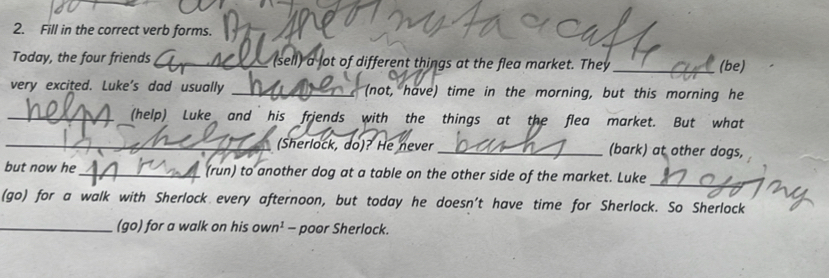 2. Fill in the correct verb forms. going to a caffe
Today, the four friends sell (sell) a lot of different things at the flea market. They are (be)
very excited. Luke's dad usually haven't got (not, have) time in the morning, but this morning he
help (help) Luke and his friends with the things at the flea market. But what
is Scherlock doing (Sherlock, do)? He never barks (bark) at other dogs,
but now he run (run) to another dog at a table on the other side of the market. Luke going
(go) for a walk with Sherlock every afternoon, but today he doesn't have time for Sherlock. So Sherlock
(go) for a walk on his own¹ – poor Sherlock.